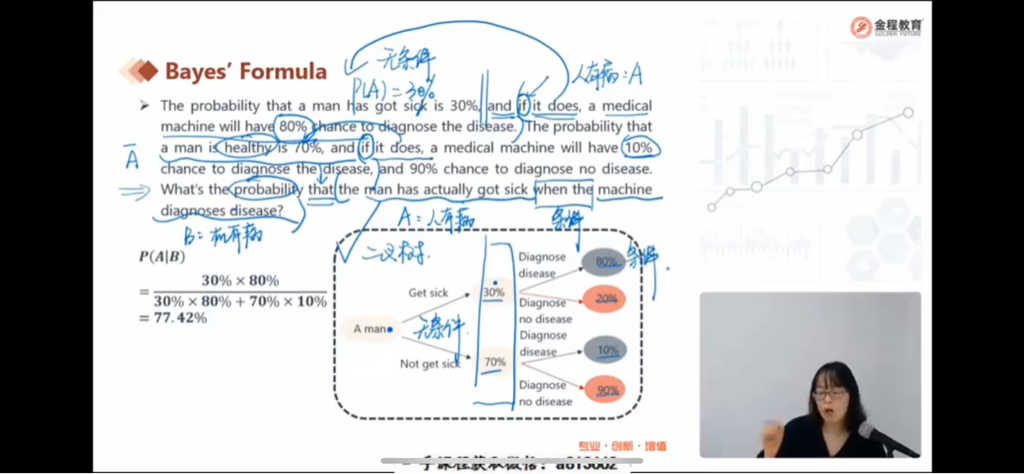 金程教育
GOLDEN FUTURE
Bayes' Formula
无条件
P(A)=30%
人有病:A
The probability that a man has got sick is 30%, and if it does, a medical
machine will have 80% chance to diagnose the disease. The probability that
a man is healthy is 70%, and if it does, a medical machine will have 10%
chance to diagnose the disease, and 90% chance to diagnose no disease.
What's the probability that the man has actually got sick when the machine
diagnoses disease?
Ā
A=人有病
条件
B=机有病
P(A|B)
= 30% × 80%
30% × 80% + 70% × 10%
= 77.42%
二叉树.
A man
Get sick
30%
无条件.
Not get sick
70%
Diagnose
disease
80%
条件
Diagnose
no disease
20%
Diagnose
disease
10%
Diagnose
no disease
90%
专业·创新·增值